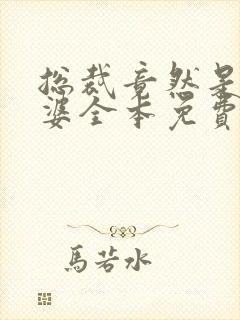 总裁竟然是
婆全本免費
馬若水